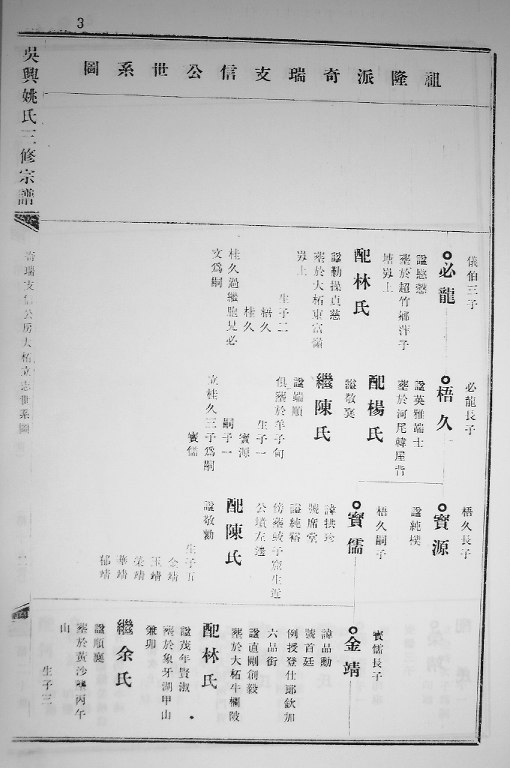 3
祖隆派奇瑞支信公世系圖
吳興姚氏三修宗譜
奇瑞支信公房大柘立志世系圖
儀伯三子
必龍
諡慇愨
塟於超竹鄉洋子
塘㘭上
配林氏
諡勤操貞慈
塟於大柘東富嶺
㘭上
生子二
梧久
桂久
桂久過繼胞兄必
文爲嗣
必龍長子
梧久
諡英雅端士
塟於河尾韓屋背
配楊氏
諡敬寬
繼陳氏
諡端順
俱塟於羊子甸
生子一
寳源
嗣子一
寳儒
立桂久三子爲嗣
梧久長子
寳源
諡純樸
梧久嗣子
寳儒
諱拱珍
號席堂
諡純裕
傍塟蛟子窩生近
公墳左邊
配陳氏
諡敬勤
生子五
金靖
玉靖
榮靖
華靖
郁靖
寳儒長子
金靖
諱品勳
號首廷
例授登仕郎欽加
六品銜
諡直剛創毅
塟於大柘牛欄陂
配林氏
諡茂年賢淑
塟於象牙湖甲山
兼卯
繼余氏
諡順寬
塟於黃沙丙午
山
生子三